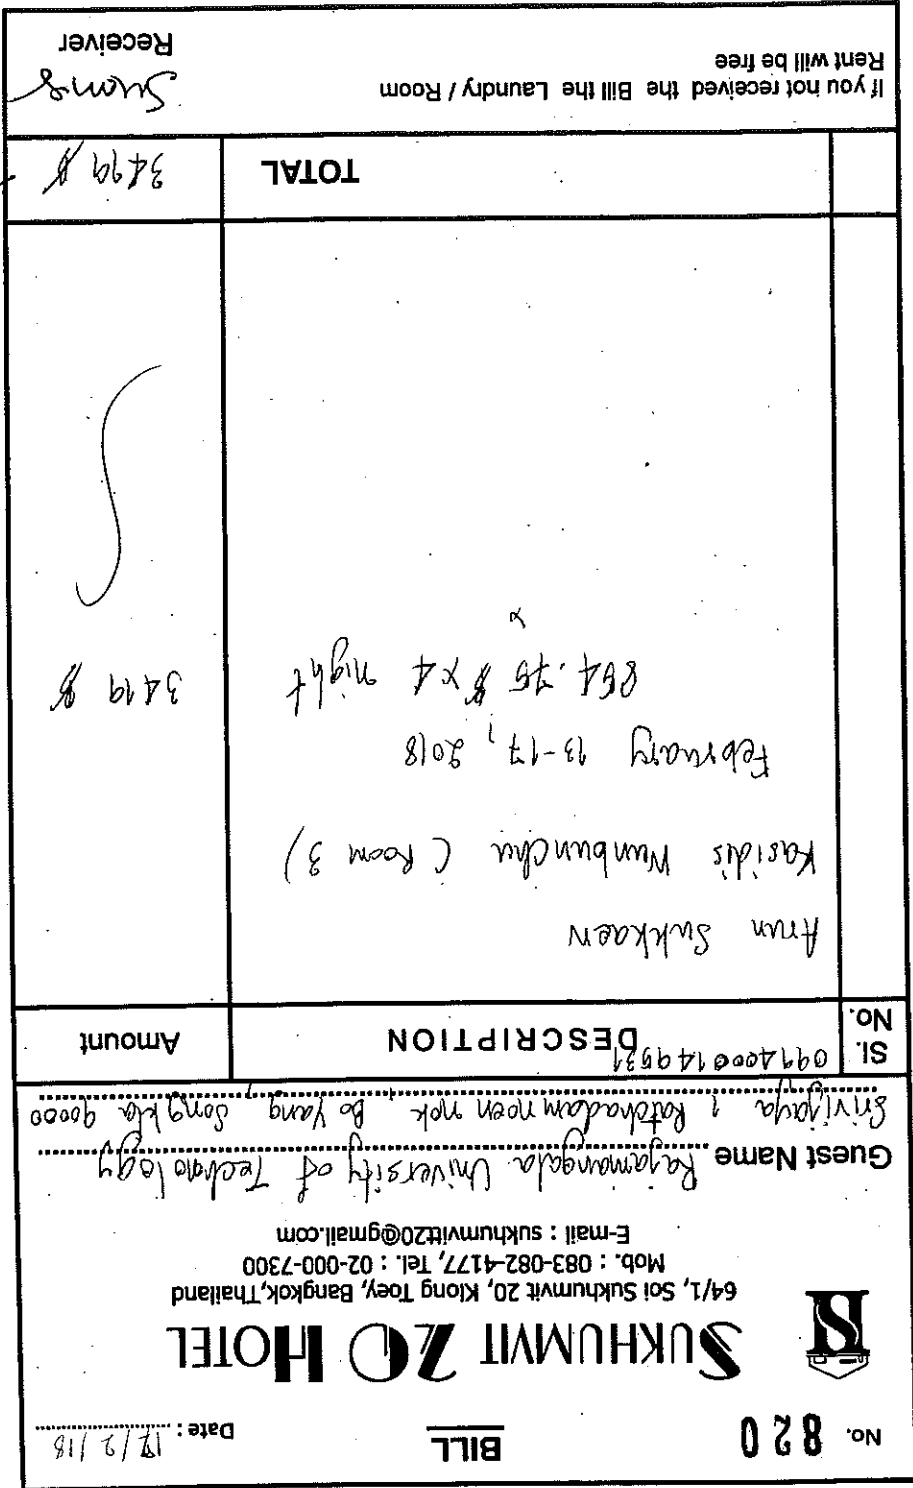 No. 820
BILL
Date : 17/2/18
SUKHUMVIT 20 HOTEL
64/1, Soi Sukhumvit 20, Klong Toey, Bangkok,Thailand
Mob. : 083-082-4177, Tel. : 02-000-7300
E-mail : sukhumvitt20@gmail.com
Guest Name Rajamangala University of Technology
Srivijaya 1 Ratchadamnoen nok, Bo Yang, Songkla 90000
0994000149531
Sl. No. DESCRIPTION Amount
Arun Sukkaew
Kasidis Wunbunchu (Room 3)
February 13-17, 2018
854.75 ฿ x 4 night 3419 ฿
TOTAL 3419 ฿
If you not received the Bill the Laundry / Room
Rent will be free
Receiver